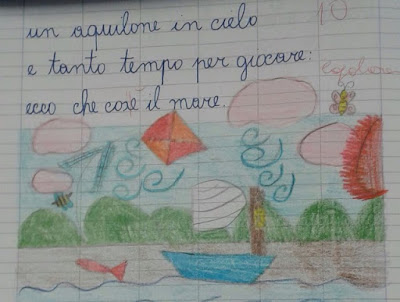 un aquilone in cielo
e tanto tempo per giocare:
ecco che cos'è il mare.
10